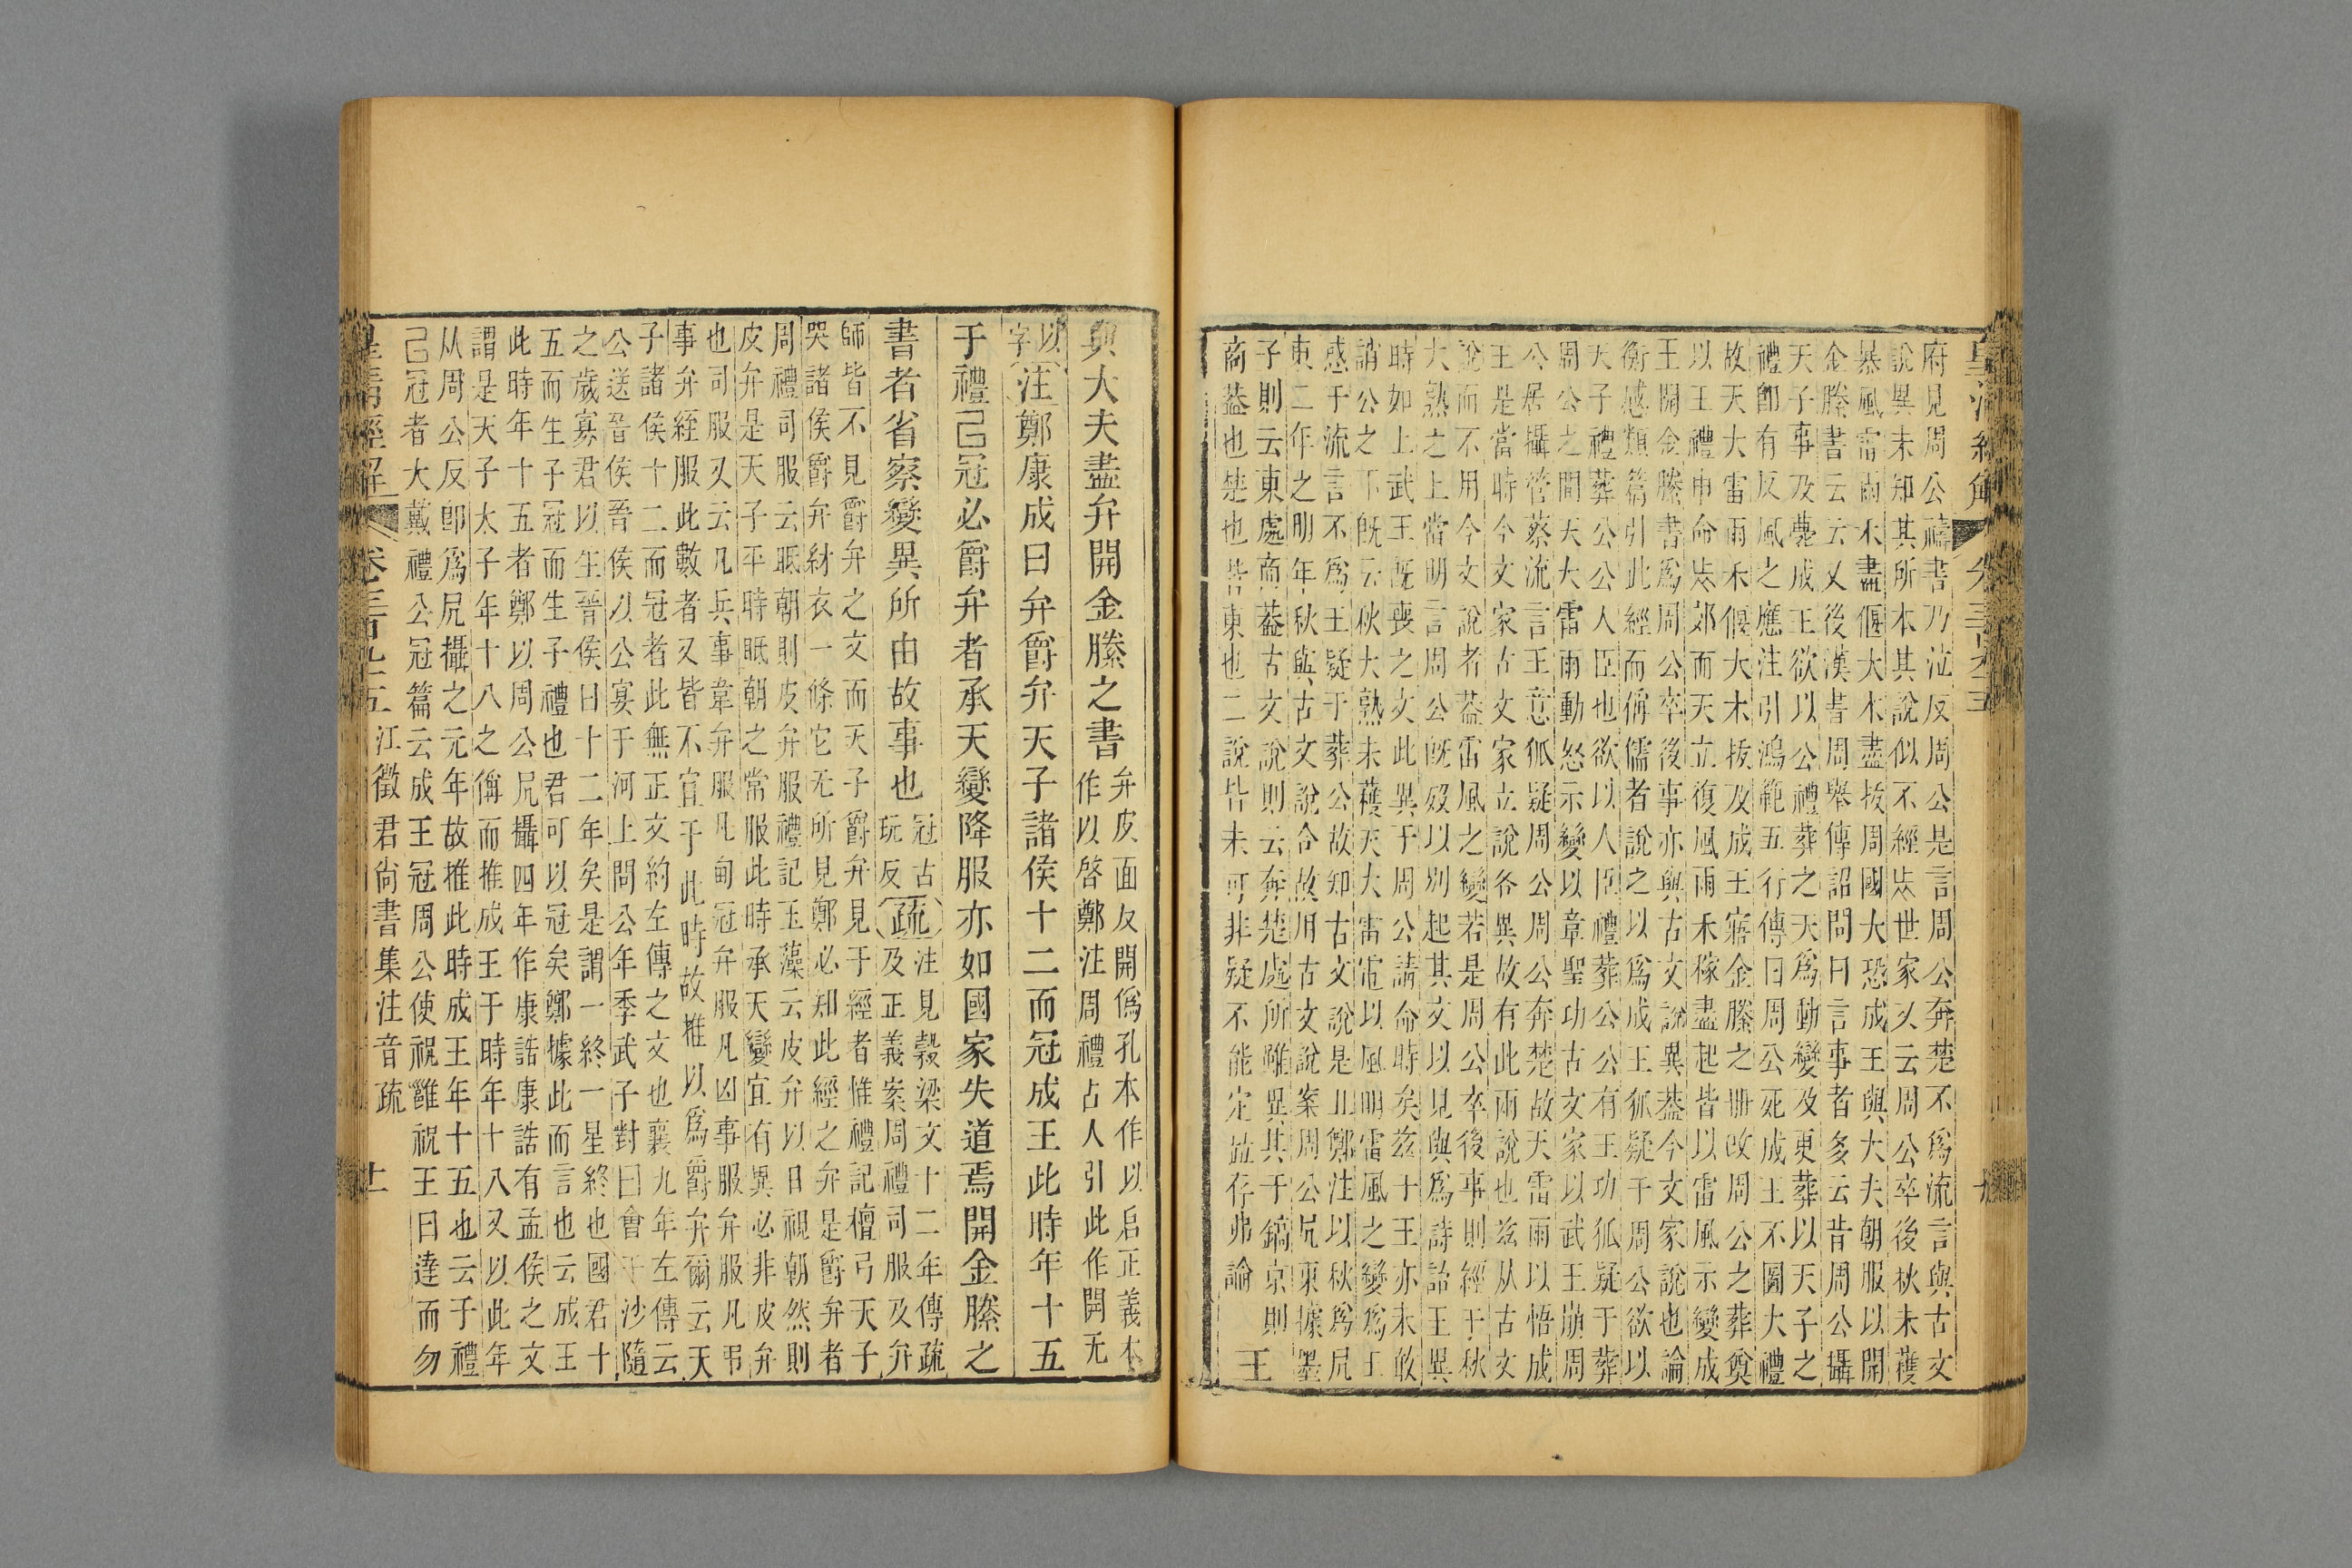 府見周公禱書乃泣反周公是言周公奔楚不爲流言與古文
說異未知其所本其說似不經㫺世家又云周公卒後秋未穫
暴風雷雨禾盡偃大木盡拔周國大恐成王與大夫朝服以開
金縢書云云又後漢書周舉傳詔問曰言事者多云昔周公攝
天子事及薨成王欲以公禮葬之天爲動變及更葬以天子之
禮卽有反風之應注引鴻範五行傳曰周公死成王不圖大禮
故天大雷雨禾偃大木拔及成王寤金縢之冊改周公之葬奠
以王禮申命㫺郊而天立復風雨禾稼盡起皆以雷風示變成
王開金縢書爲周公卒後事亦與古文說異葢今文家說也論
衡感類篇引此經而偁儒者說之以爲成王狐疑于周公欲以
天子禮葬公公人臣也欲以人臣禮葬公公有王功狐疑于葬
周公之間天大雷雨動怒示變以章聖功古文家以武王崩周
公居攝管蔡流言王意狐疑周公周公奔楚故天雷雨以悟成
王是當時今文家古文家立說各異故有此兩說也兹从古文
說而不用今文說者葢雷風之變若是周公卒後事則經于秋
大熟之上當明言周公旣歿以別起其文以見與爲詩詒王異
時如上武王旣喪之文此異于周公請命時矣兹于王亦未敢
誚公之下旣云秋大熟未穫天大雷電以風明雷風之變爲王
惑于流言不爲王疑于葬公故知古文說是且鄭注以秋爲凥
東二年之明年秋與古文說合故用古文說案周公凥東據墨
子則云東處商葢古文說則云奔楚處所雖異其于鎬京則
商葢也楚也皆東也二說皆未可非疑不能定竝存弗論 王
與大夫盡弁開金縢之書 弁皮面反開僞孔本作以启正義本
作以啓鄭注周禮占人引此作開无
以字 注鄭康成曰弁爵弁天子諸侯十二而冠成王此時年十五
于禮已冠必爵弁者承天變降服亦如國家失道焉開金縢之
書者省察變異所由故事也 冠古玩反 疏 注見穀梁文十二年傳疏
及正義案周禮司服及弁
師皆不見爵弁之文而天子爵弁見于經者惟禮記檀弓天子
哭諸侯爵弁紂衣一條它无所見鄭必知此經之弁是爵弁者
周禮司服云眂朝則皮弁服禮記玉藻云皮弁以日視朝然則
皮弁是天子平時眂朝之常服此時承天變宜有異必非皮弁
也司服又云凡兵事韋弁服凡甸冠弁服凡凶事服弁服凡弔
事弁絰服此數者又皆不宜于此時故推以爲爵弁爾云天
子諸侯十二而冠者此無正文約左傳之文也襄九年左傳云
公送晉侯晉侯以公宴于河上問公年季武子對曰會于沙隨
之歲寡君以生晉侯曰十二年矣是謂一終一星終也國君十
五而生子冠而生子禮也君可以冠矣鄭據此而言也云成王
此時年十五者鄭以周公凥攝四年作康誥康誥有孟侯之文
謂是天子太子年十八之偁而推成王于時年十八又以此年
从周公反卽爲凥攝之元年故推此時成王年十五也云子禮
己冠者大戴禮公冠篇云成王冠周公使祝雝祝王曰達而勿
皇清經解 卷三百九十五 江徵君尙書集注音疏 十